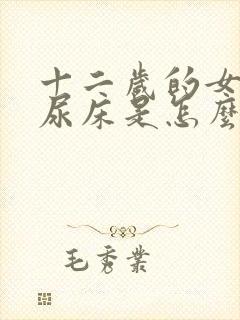 十二歲的女
尿床是怎麼
毛秀業